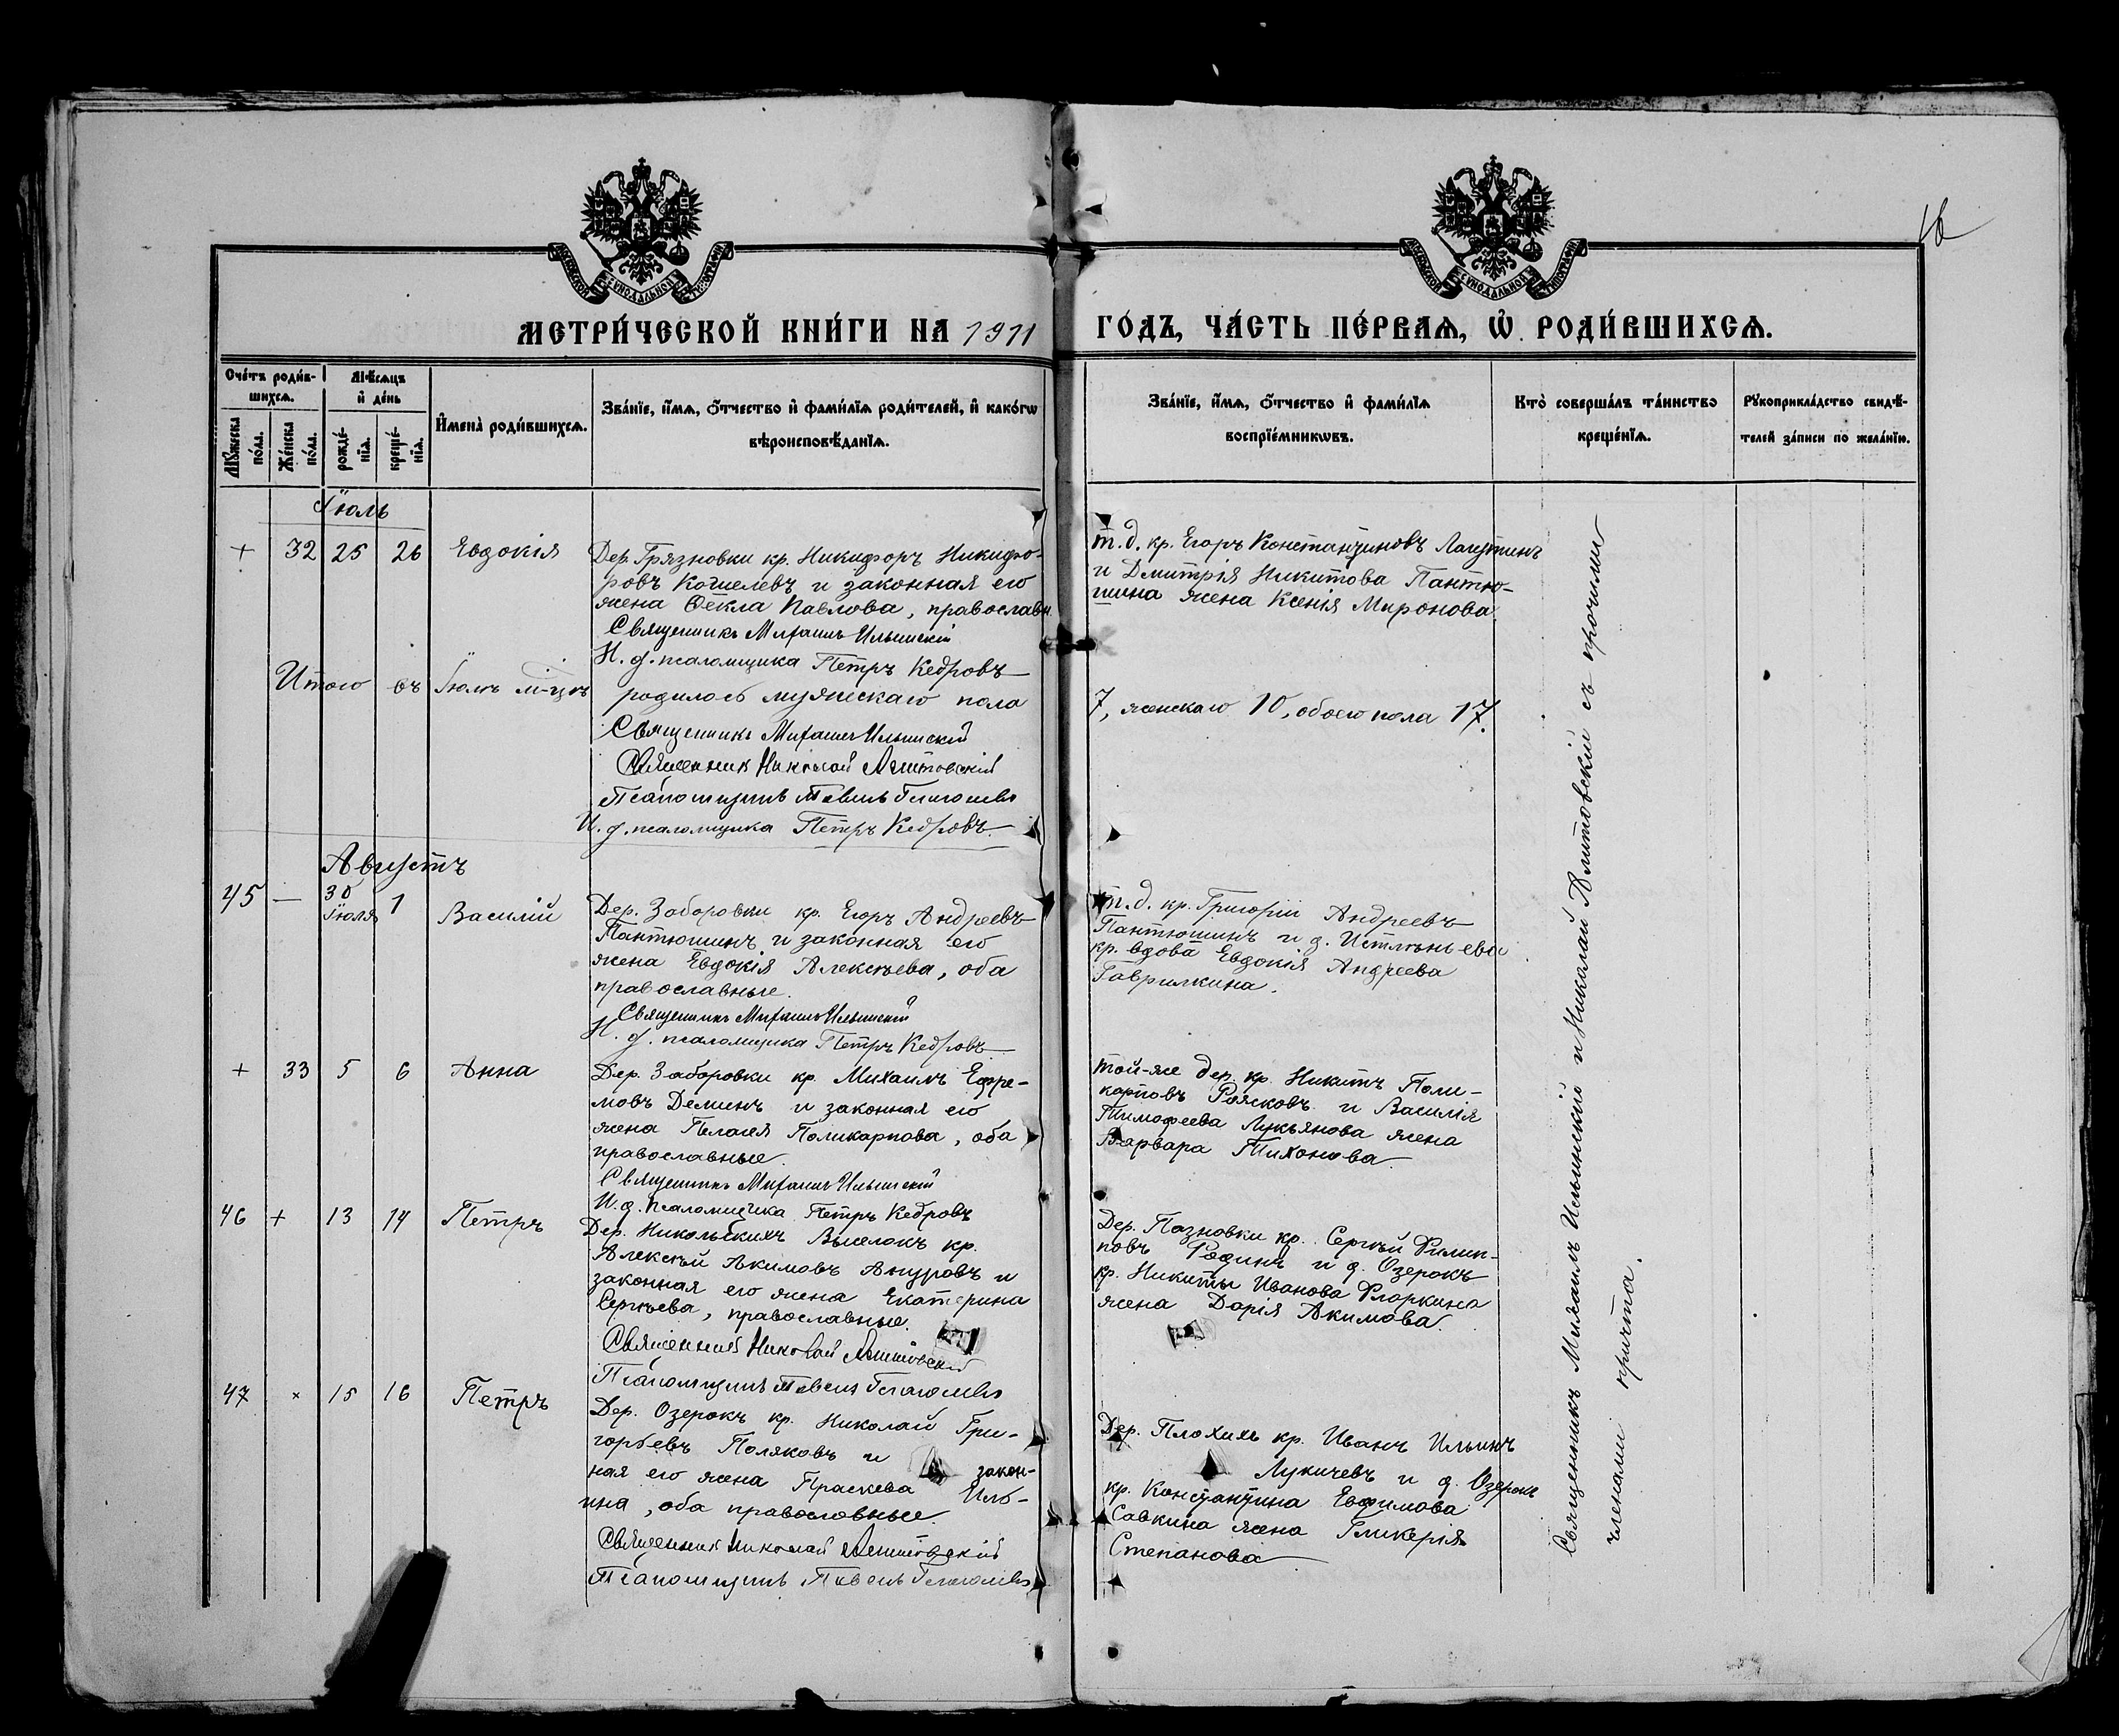 16
МОСКОВСКОЙ СУНОДАЛЬНОЙ ТИПОГРАФІИ
МОСКОВСКОЙ СУНОДАЛЬНОЙ ТИПОГРАФІИ
МЕТРИ́ЧЕСКОЙ КНИ́ГИ НА 1911 ГО́ДЪ, ЧА́СТЬ ПЕ́РВАѦ, Ѡ҆ РОДИ́ВШИХСѦ.
Сче́тъ роди́в-
шихсѧ.
Мꙋжеска по́ла.
Же́нска по́ла.
Мѣ́сѧцъ
и҆ де́нь
рожде́-
нїѧ.
креще́-
нїѧ.
И҆мена̀ роди́вшихсѧ.
Зва́нїе, и҆́мѧ, ѻ҆́тчество и҆ фами́лїѧ роди́телей, и҆ како́гѡ
вѣроисповѣ́данїѧ.
Зва́нїе, и҆́мѧ, ѻ҆́тчество и҆ фами́лїѧ
воспрїе́мникѡвъ.
Кто̀ соверша́лъ та́инство
креще́нїѧ.
Рꙋкоприкла́дство свидѣ́-
телей за́писи по жела́нїю.
Іюль
+ 32 25 26 Евдокія
Дер. Грязновки кр. Никифоръ Никифо-
ровъ Кошелевъ и законная его
жена Ѳекла Павлова, православн.
Священникъ Михаилъ Ильинскій
И. д. псаломщика Петръ Кедровъ
т. д. кр. Егоръ Константиновъ Лагутинъ
и Дмитрія Никитова Пантю-
шина жена Ксенія Миронова.
Итого въ Іюлѣ м-цѣ родилось мужескаго пола 7, женскаго 10, обоего пола 17.
Священникъ Михаилъ Ильинскій
Священник Николай Аметовскій
Псаломщикъ Павелъ Глаголевъ
И. д. псаломщика Петръ Кедровъ
Августъ
45 — 30 Іюля 1 Василій
Дер. Заборовки кр. Егоръ Андреевъ
Пантюшинъ и законная его
жена Евдокія Алексѣева, оба
православные.
Священникъ Михаилъ Ильинскій
И. д. псаломщика Петръ Кедровъ
т. д. кр. Григорій Андреевъ
Пантюшинъ и д.
кр. вдова Евдокія Андреева
Гаврилкина.
+ 33 5 6 Анна
Дер. Заборовки кр. Михаилъ Ефре-
мовъ Деминъ и законная его
жена Пелагея Поликарпова, оба
православные.
Священникъ Михаилъ Ильинскій
И. д. псаломщика Петръ Кедровъ
той-же дер. кр. Никитъ Поли-
карповъ Рожсковъ и Василія
Тимофеева Лукьянова жена
Варвара Тихонова
46 + 13 14 Петръ
Дер. Никольскихъ Выселокъ кр.
Алексѣй Акимовъ Ануровъ и
законная его жена Екатерина
Сергѣева, православные.
Священник Николай Аметовскій
Псаломщикъ Павелъ Глаголевъ
Дер. Позновки кр. Сергѣй Филип-
повъ Родинъ и д. Озерокъ
кр. Никиты Иванова Фларкина
жена Дарія Акимова.
47 × 15 16 Петръ
Дер. Озерокъ кр. Николай Гри-
горьевъ Поляковъ и закон-
ная его жена Праскева Иль-
ина, оба православные.
Священник Николай Аметовскій
Псаломщикъ Павелъ Глаголевъ
Дер. Плохихъ кр. Иванъ Ильинъ
Лукичевъ и д. Озерокъ
кр. Константина Евфимова
Савкина жена Гликерія
Степанова
Священникъ Михаилъ Ильинскій и Николай Аметовскій съ прочими
членами причта.